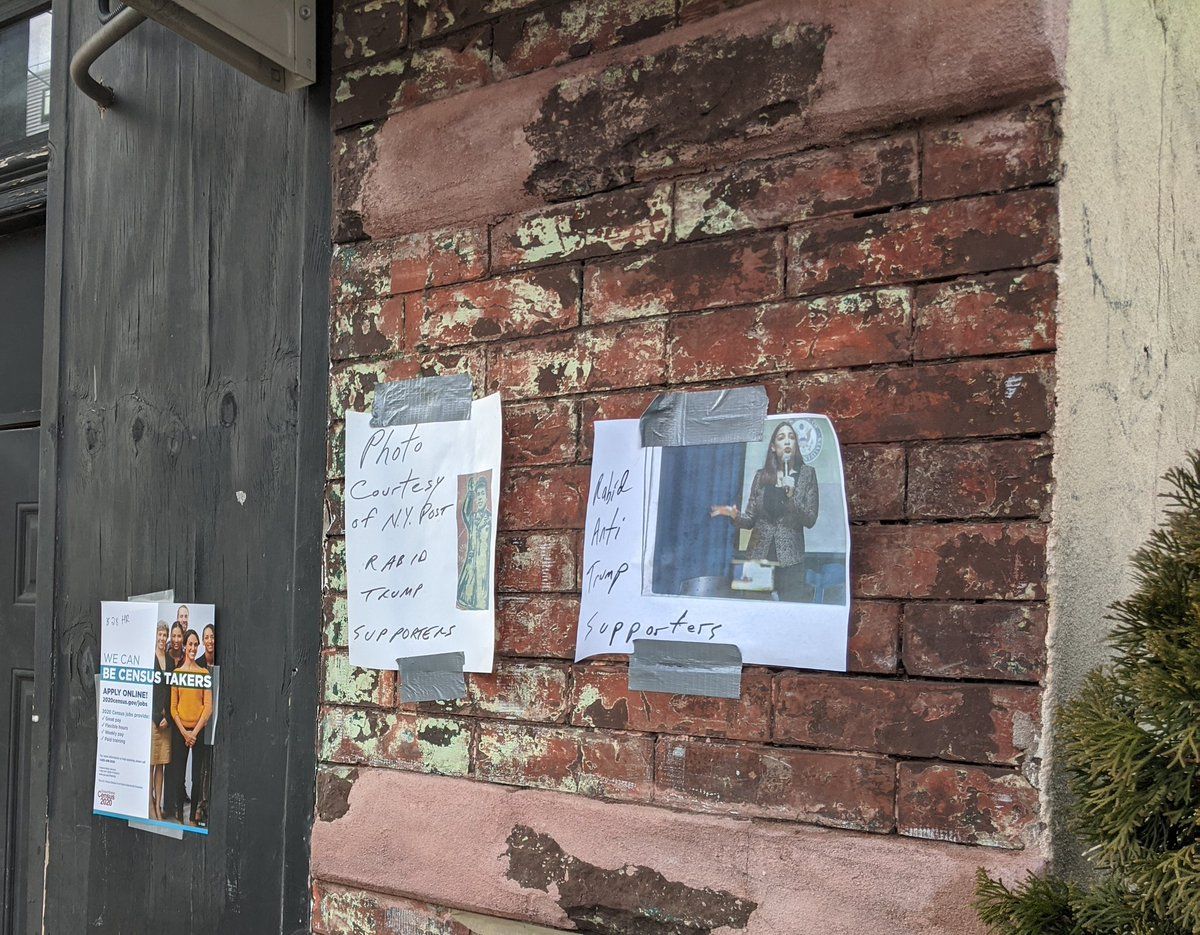 $28 HR
WE CAN
BE CENSUS TAKERS
APPLY ONLINE!
2020census.gov/jobs
2020 Census jobs provide:
✓ Great pay
✓ Flexible hours
✓ Weekly pay
✓ Paid training
Census
2020
Photo
Courtesy
of N.Y. Post
RABID
TRUMP
SUPPORTERS
Rabid
Anti
Trump
Supporters